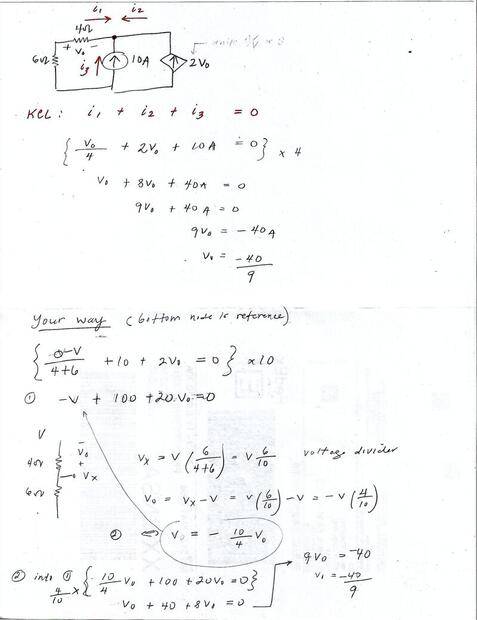 i₁ i₂
4Ω
+ V₀ -
6Ω
i₃
10A
2V₀
KCL: i₁ + i₂ + i₃ = 0
{ V₀/4 + 2V₀ + 10A = 0 } × 4
V₀ + 8V₀ + 40A = 0
9V₀ + 40A = 0
9V₀ = -40A
V₀ = -40/9
Your way (bottom node is reference)
{ 0-V/4+6 + 10 + 2V₀ = 0 } × 10
① -V + 100 + 20V₀ = 0
V
4Ω
- V₀ +
Vx
6Ω
Vx = V (6/4+6) = V 6/10 voltage divider
V₀ = Vx - V = V(6/10) - V = -V(4/10)
② V₀ = - 10/4 V₀
② into ①
4/10 × { 10/4 V₀ + 100 + 20V₀ = 0 }
V₀ + 40 + 8V₀ = 0
9V₀ = -40
V₀ = -40/9